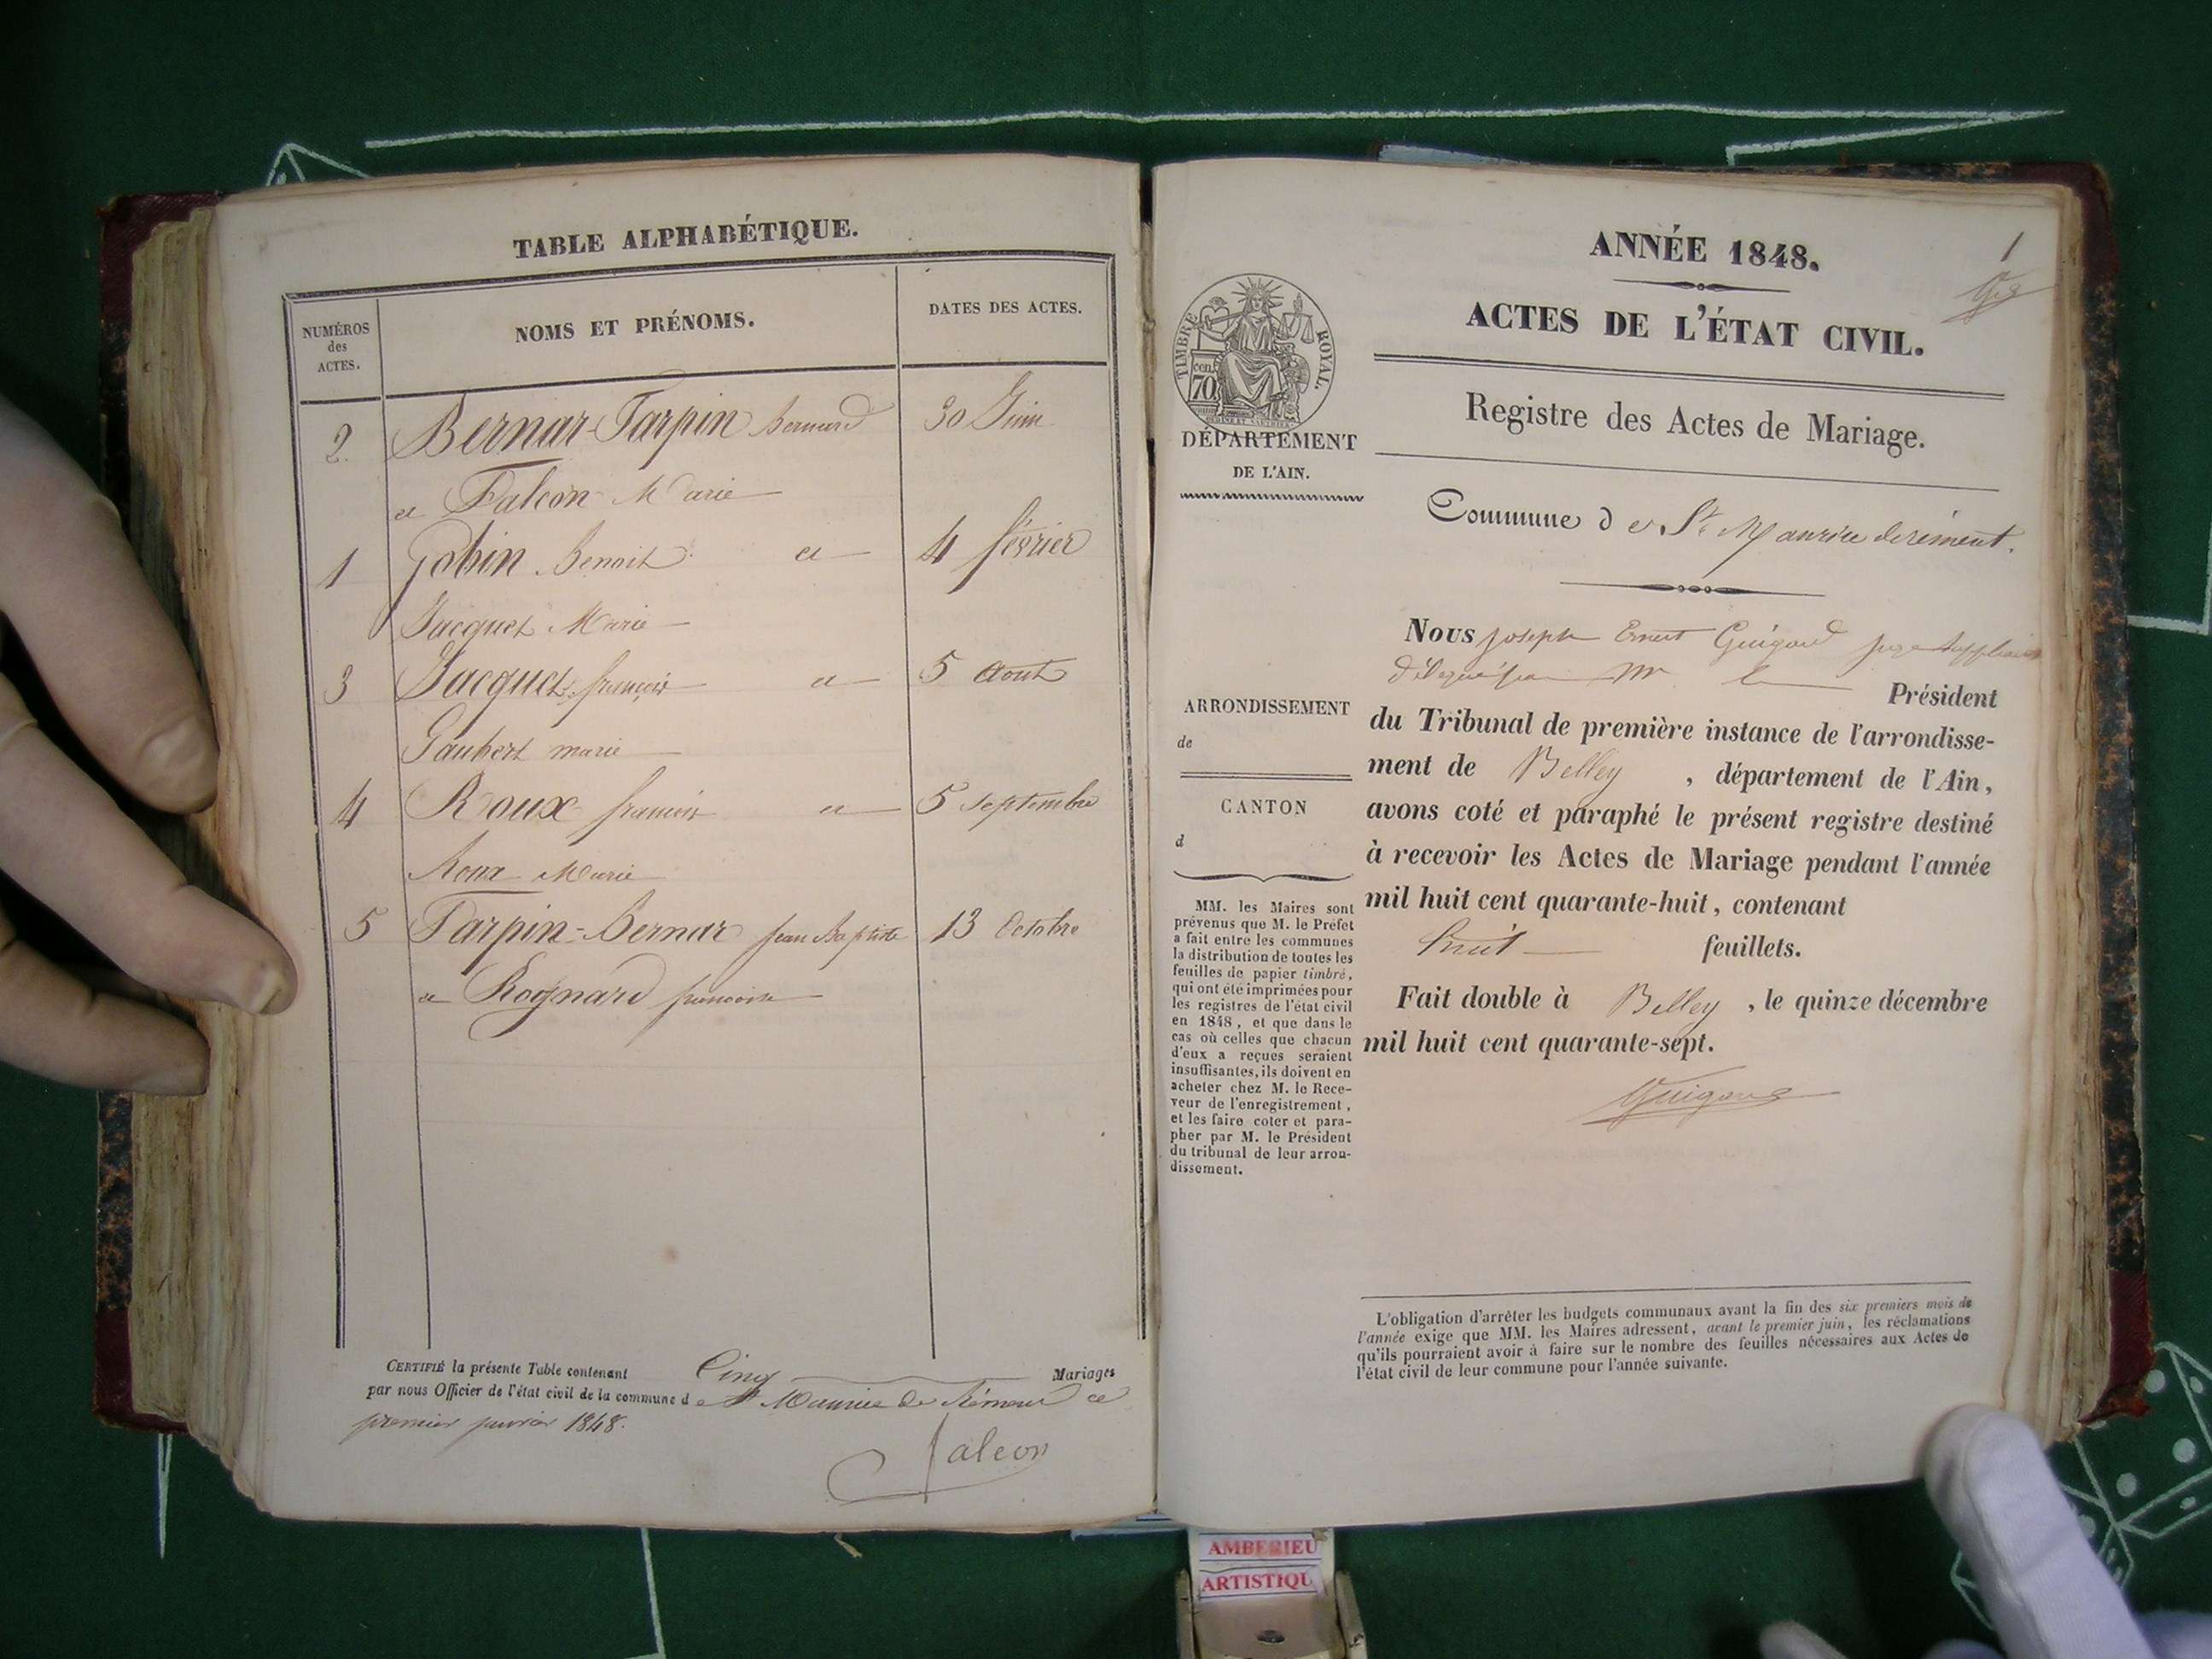 TABLE ALPHABÉTIQUE.
NUMÉROS
des
ACTES.
NOMS ET PRÉNOMS.
DATES DES ACTES.
2. Bernar-Tarpin Bernard 30 Juin
et Falcon Marie
1 Gobin Benoit et 4 février
Jacquet Marie
3 Jacquet françois et 5 Aout
Gaubert marie
4 Roux francois et 5 septembre
Roux Marie
5 Tarpin-Bernar jean Baptiste 13 Octobre
et Rognard francoise
CERTIFIÉ la présente Table contenant Cinq Mariages
par nous Officier de l'état civil de la commune de St Maurice de Rémens ce
premier janvier 1848.
falcon
1
ANNÉE 1848.
ACTES DE L'ÉTAT CIVIL.
TIMBRE ROYAL.
cen.
70
DÉPARTEMENT
DE L'AIN.
Registre des Actes de Mariage.
Commune de St. Maurice derément.
Nous joseph Ernest Guigard juge suppléant
délégué par Mr le Président
du Tribunal de première instance de l'arrondisse-
ment de Belley , département de l'Ain,
avons coté et paraphé le présent registre destiné
à recevoir les Actes de Mariage pendant l'année
mil huit cent quarante-huit, contenant
huit feuillets.
Fait double à Belley , le quinze décembre
mil huit cent quarante-sept.
ARRONDISSEMENT
de
CANTON
d
MM. les Maires sont
prévenus que M. le Préfet
a fait entre les communes
la distribution de toutes les
feuilles de papier timbré,
qui ont été imprimées pour
les registres de l'état civil
en 1848, et que dans le
cas où celles que chacun
d'eux a reçues seraient
insuffisantes, ils doivent en
acheter chez M. le Rece-
veur de l'enregistrement,
et les faire coter et para-
pher par M. le Président
du tribunal de leur arron-
dissement.
L'obligation d'arrêter les budgets communaux avant la fin des six premiers mois de
l'année exige que MM. les Maires adressent, avant le premier juin, les réclamations
qu'ils pourraient avoir à faire sur le nombre des feuilles nécessaires aux Actes de
l'état civil de leur commune pour l'année suivante.
AMBERIEU
ARTISTIQU